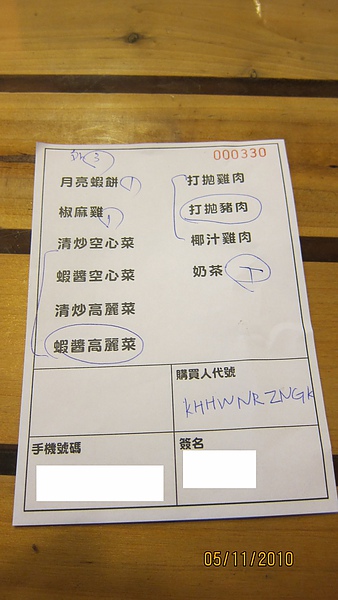 000330
月亮蝦餅 1
椒麻雞 1
清炒空心菜
蝦醬空心菜
清炒高麗菜
蝦醬高麗菜
打拋雞肉
打拋豬肉
椰汁雞肉
奶茶
購買人代號
KHHWNRZNGK
手機號碼
簽名
05/11/2010